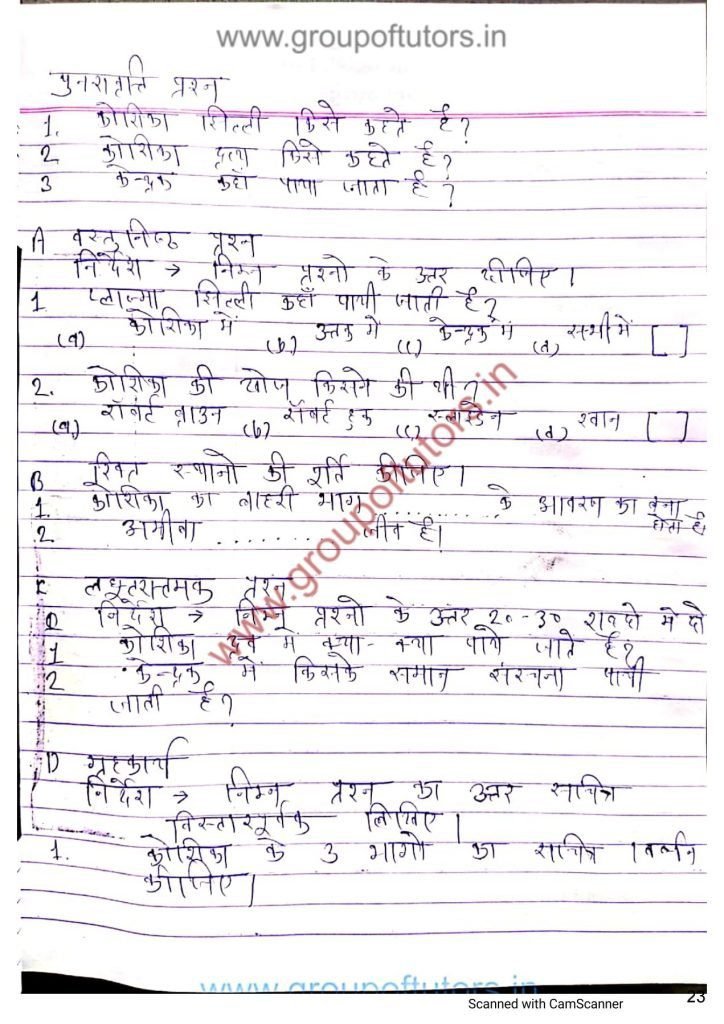 www.groupoftutors.in
पुनरावृत्ति प्रश्न
1. कोशिका झिल्ली किसे कहते है?
2 कोशिका द्रव्य किसे कहते है?
3 केन्द्रक कहाँ पाया जाता है?
A वस्तुनिष्ठ प्रश्न
निर्देश → निम्न प्रश्नो के उत्तर दीजिए।
1 प्लाज्मा झिल्ली कहाँ पायी जाती है?
(a) कोशिका में (b) उत्तक में (c) केन्द्रक में (d) सभी में [ ]
2. कोशिका की खोज किसने की थी?
(a) रॉबर्ट ब्राउन (b) रॉबर्ट हुक (c) स्लाइडेन (d) श्वान [ ]
B रिक्त स्थानो की पूर्ति कीजिए।
1 कोशिका का बाहरी भाग .......... के आवरण का बना होता है।
2 अमीबा ........ जीव है।
लघूत्तरात्मक प्रश्न
निर्देश → निम्न प्रश्नो के उत्तर 20-30 शब्दो में दो
1 कोशिका द्रव में क्या-क्या पाये जाते है?
2 केन्द्रक में किसके समान संरचना पायी
जाती है?
D ग्रहकार्य
निर्देश → निम्न प्रश्न का उत्तर सचित्र
विस्तारपूर्वक लिखिए।
1. कोशिका के 3 भागो का सचित्र वर्णन
कीजिए।
www.groupoftutors.in
www.groupoftutors.in
23
Scanned with CamScanner